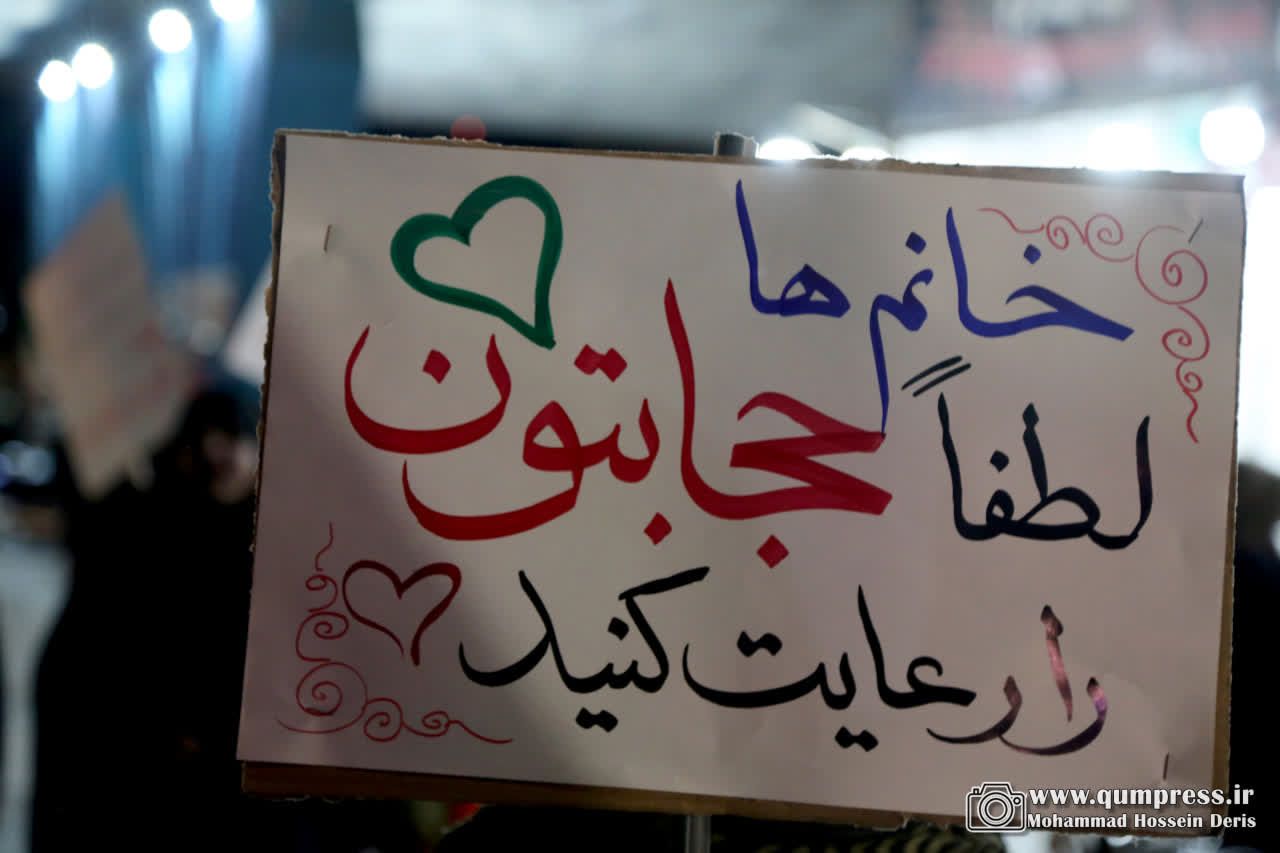 خانم ها
لطفاً حجابتون
را رعایت کنید
www.qumpress.ir
Mohammad Hossein Deris